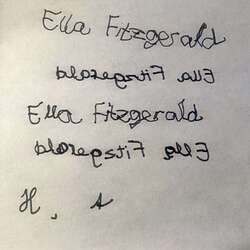 Ella Fitzgerald
Ella Fitzgerald
Ella Fitzgerald
Ella Fitzgerald
H, A